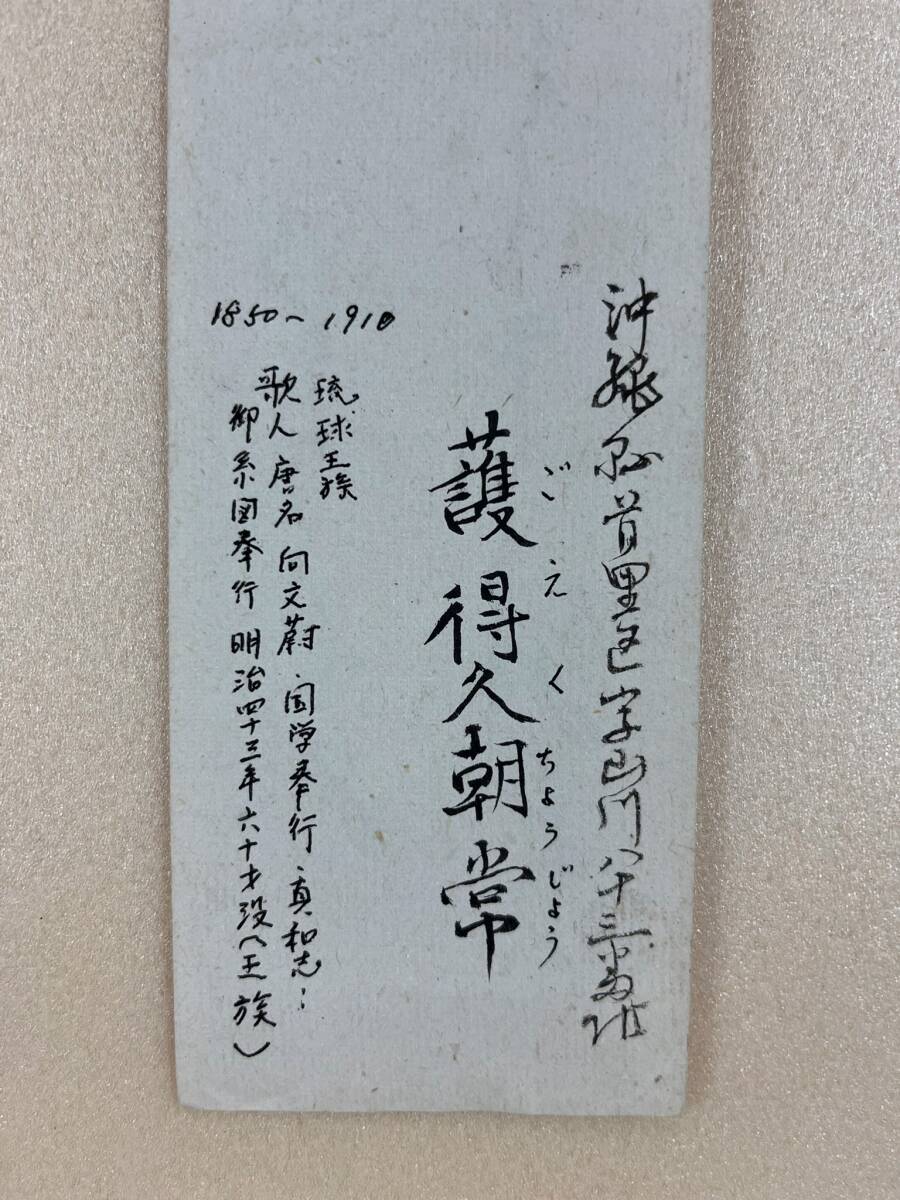 沖縄県首里区字山川八十三番地
護得久朝常
ごえくちょうじょう
1850~1910
琉球王族
歌人 唐名 向文蔚、国学奉行、真和志:
御系図奉行 明治四十三年六十才没(王族)